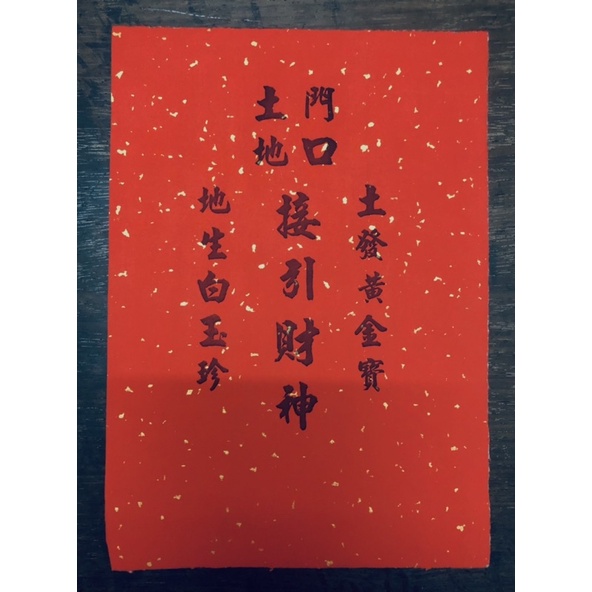 門口
土地
土發黃金寶
接引財神
地生白玉珍